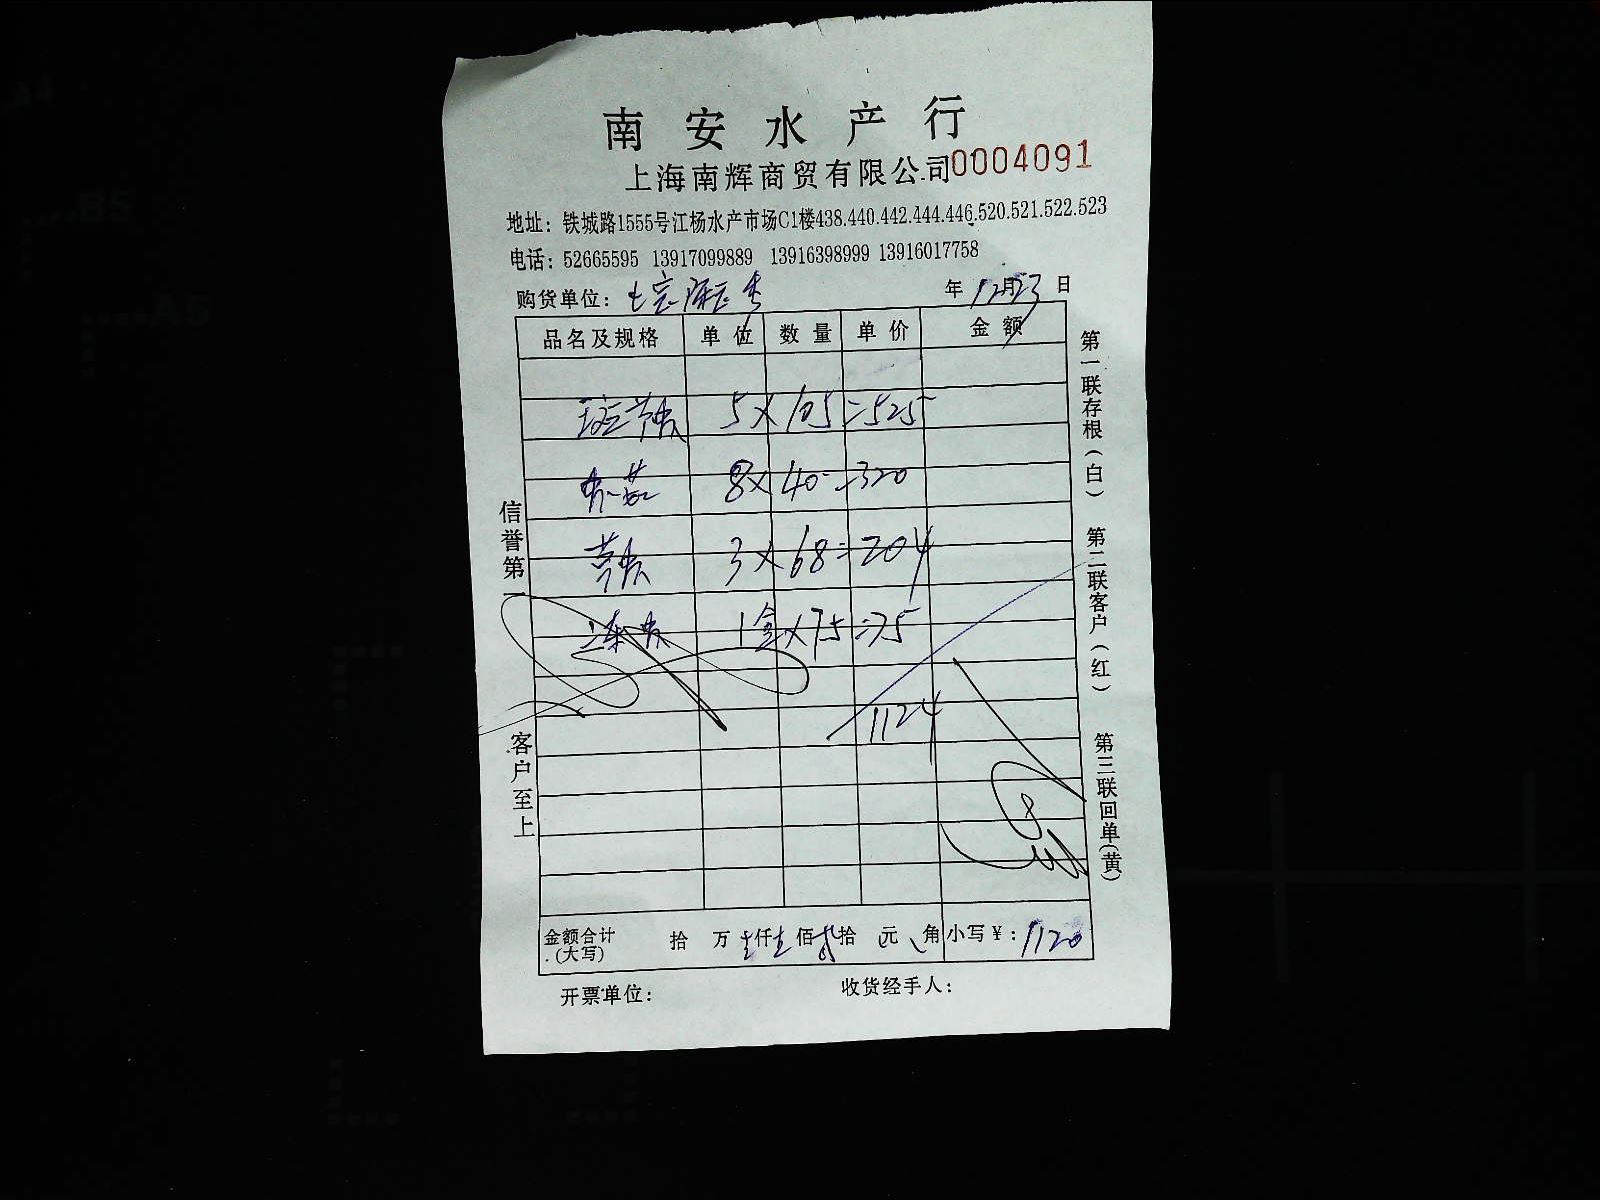 南安水产行
上海南辉商贸有限公司0004091
地址：铁城路1555号江杨水产市场C1楼438.440.442.444.446.520.521.522.523
电话：52665595 13917099889 13916398999 13916017758
购货单位： 年12月23日
品名及规格 单位 数量 单价 金额
5×105=525
8×40=320
3×68=204
1盒×75=75
1124
金额合计(大写) 拾 万 仟 佰 拾 元 角 小写￥：1120
开票单位： 收货经手人：
信誉第一 客户至上
第一联存根(白) 第二联客户(红) 第三联回单(黄)